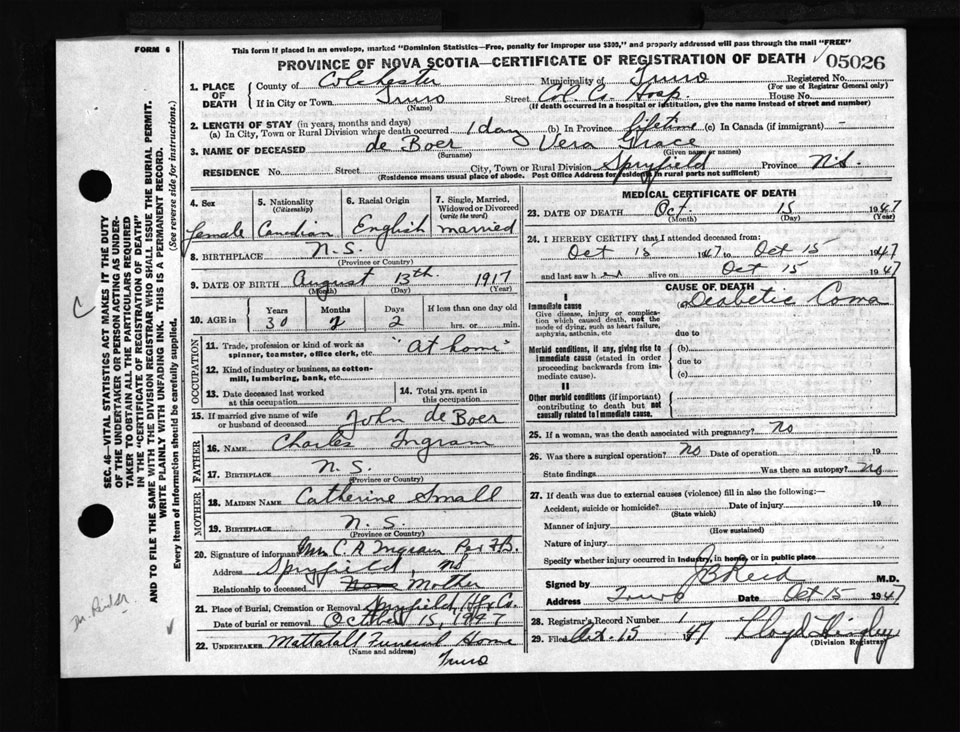 FORM 6
This form if placed in an envelope, marked "Dominion Statistics—Free, penalty for improper use $300," and properly addressed will pass through the mail "FREE"
PROVINCE OF NOVA SCOTIA—CERTIFICATE OF REGISTRATION OF DEATH √ 05026
1. PLACE OF DEATH
County of Colchester Municipality of Truro Registered No.
(For use of Registrar General only)
If in City or Town Truro Street Col. Co. Hosp. House No.
(Name) (If death occurred in a hospital or institution, give the name instead of street and number)
2. LENGTH OF STAY (in years, months and days)
(a) In City, Town or Rural Division where death occurred 1 day (b) In Province lifetime (c) In Canada (if immigrant) -
3. NAME OF DECEASED de Boer Vera Grace
(Surname) (Given name or names)
RESIDENCE No. Street City, Town or Rural Division Spryfield Province N.S.
(Residence means usual place of abode. Post Office Address for residents in rural parts not sufficient)
4. Sex
female
5. Nationality
(Citizenship)
Canadian
6. Racial Origin
English
7. Single, Married, Widowed or Divorced
(write the word)
married
8. BIRTHPLACE N.S.
(Province or Country)
9. DATE OF BIRTH August 13th 1917
(Month) (Day) (Year)
10. AGE in Years Months Days If less than one day
30 2 2 hrs. or min.
OCCUPATION
11. Trade, profession or kind of work as spinner, teamster, office clerk, etc. "at home"
12. Kind of industry or business, as cotton-mill, lumbering, bank, etc.
13. Date deceased last worked at this occupation
14. Total yrs. spent in this occupation
15. If married give name of wife or husband of deceased John de Boer
FATHER
16. NAME Charles Ingram
17. BIRTHPLACE N.S.
(Province or Country)
MOTHER
18. MAIDEN NAME Catherine Small
19. BIRTHPLACE N.S.
(Province or Country)
20. Signature of informant Mrs C. A Ingram Per F.B.
Address Spryfield, NS
Relationship to deceased Mother
21. Place of Burial, Cremation or Removal Spryfield, Hfx Co.
Date of burial or removal October 15, 1947
22. UNDERTAKER Mattatall Funeral Home
(Name and address) Truro
MEDICAL CERTIFICATE OF DEATH
23. DATE OF DEATH Oct 15 1947
(Month) (Day) (Year)
24. I HEREBY CERTIFY that I attended deceased from:
Oct 15 1947 to Oct 15 1947
and last saw her alive on Oct 15 1947
CAUSE OF DEATH
I
Immediate cause
Give disease, injury or complication which caused death, not the mode of dying, such as heart failure, asphyxia, asthenia, etc
(a) Diabetic Coma
due to
Morbid conditions, if any, giving rise to immediate cause (stated in order proceeding backwards from immediate cause).
(b)
due to
(c)
II
Other morbid conditions (if important) contributing to death but not causally related to immediate cause.
25. If a woman, was the death associated with pregnancy? No
26. Was there a surgical operation? No Date of operation 19
State findings Was there an autopsy? No
27. If death was due to external causes (violence) fill in also the following:—
Accident, suicide or homicide? Date of injury 19
(State which)
Manner of injury
(How sustained)
Nature of injury
Specify whether injury occurred in industry, in home, or in public place
Signed by J B Reid M.D.
Address Truro Date Oct 15 1947
28. Registrar's Record Number
29. Filed Oct. 15 47 Lloyd
(Division Registrar)
SEC. 46—VITAL STATISTICS ACT MAKES IT THE DUTY OF THE UNDERTAKER OR PERSON ACTING AS UNDERTAKER TO OBTAIN ALL THE PARTICULARS REQUIRED IN THE "CERTIFICATE OF REGISTRATION OF DEATH" AND TO FILE THE SAME WITH THE DIVISION REGISTRAR WHO SHALL ISSUE THE BURIAL PERMIT.
WRITE PLAINLY WITH UNFADING INK. THIS IS A PERMANENT RECORD.
Every item of information should be carefully supplied. (See reverse side for instructions.)
C